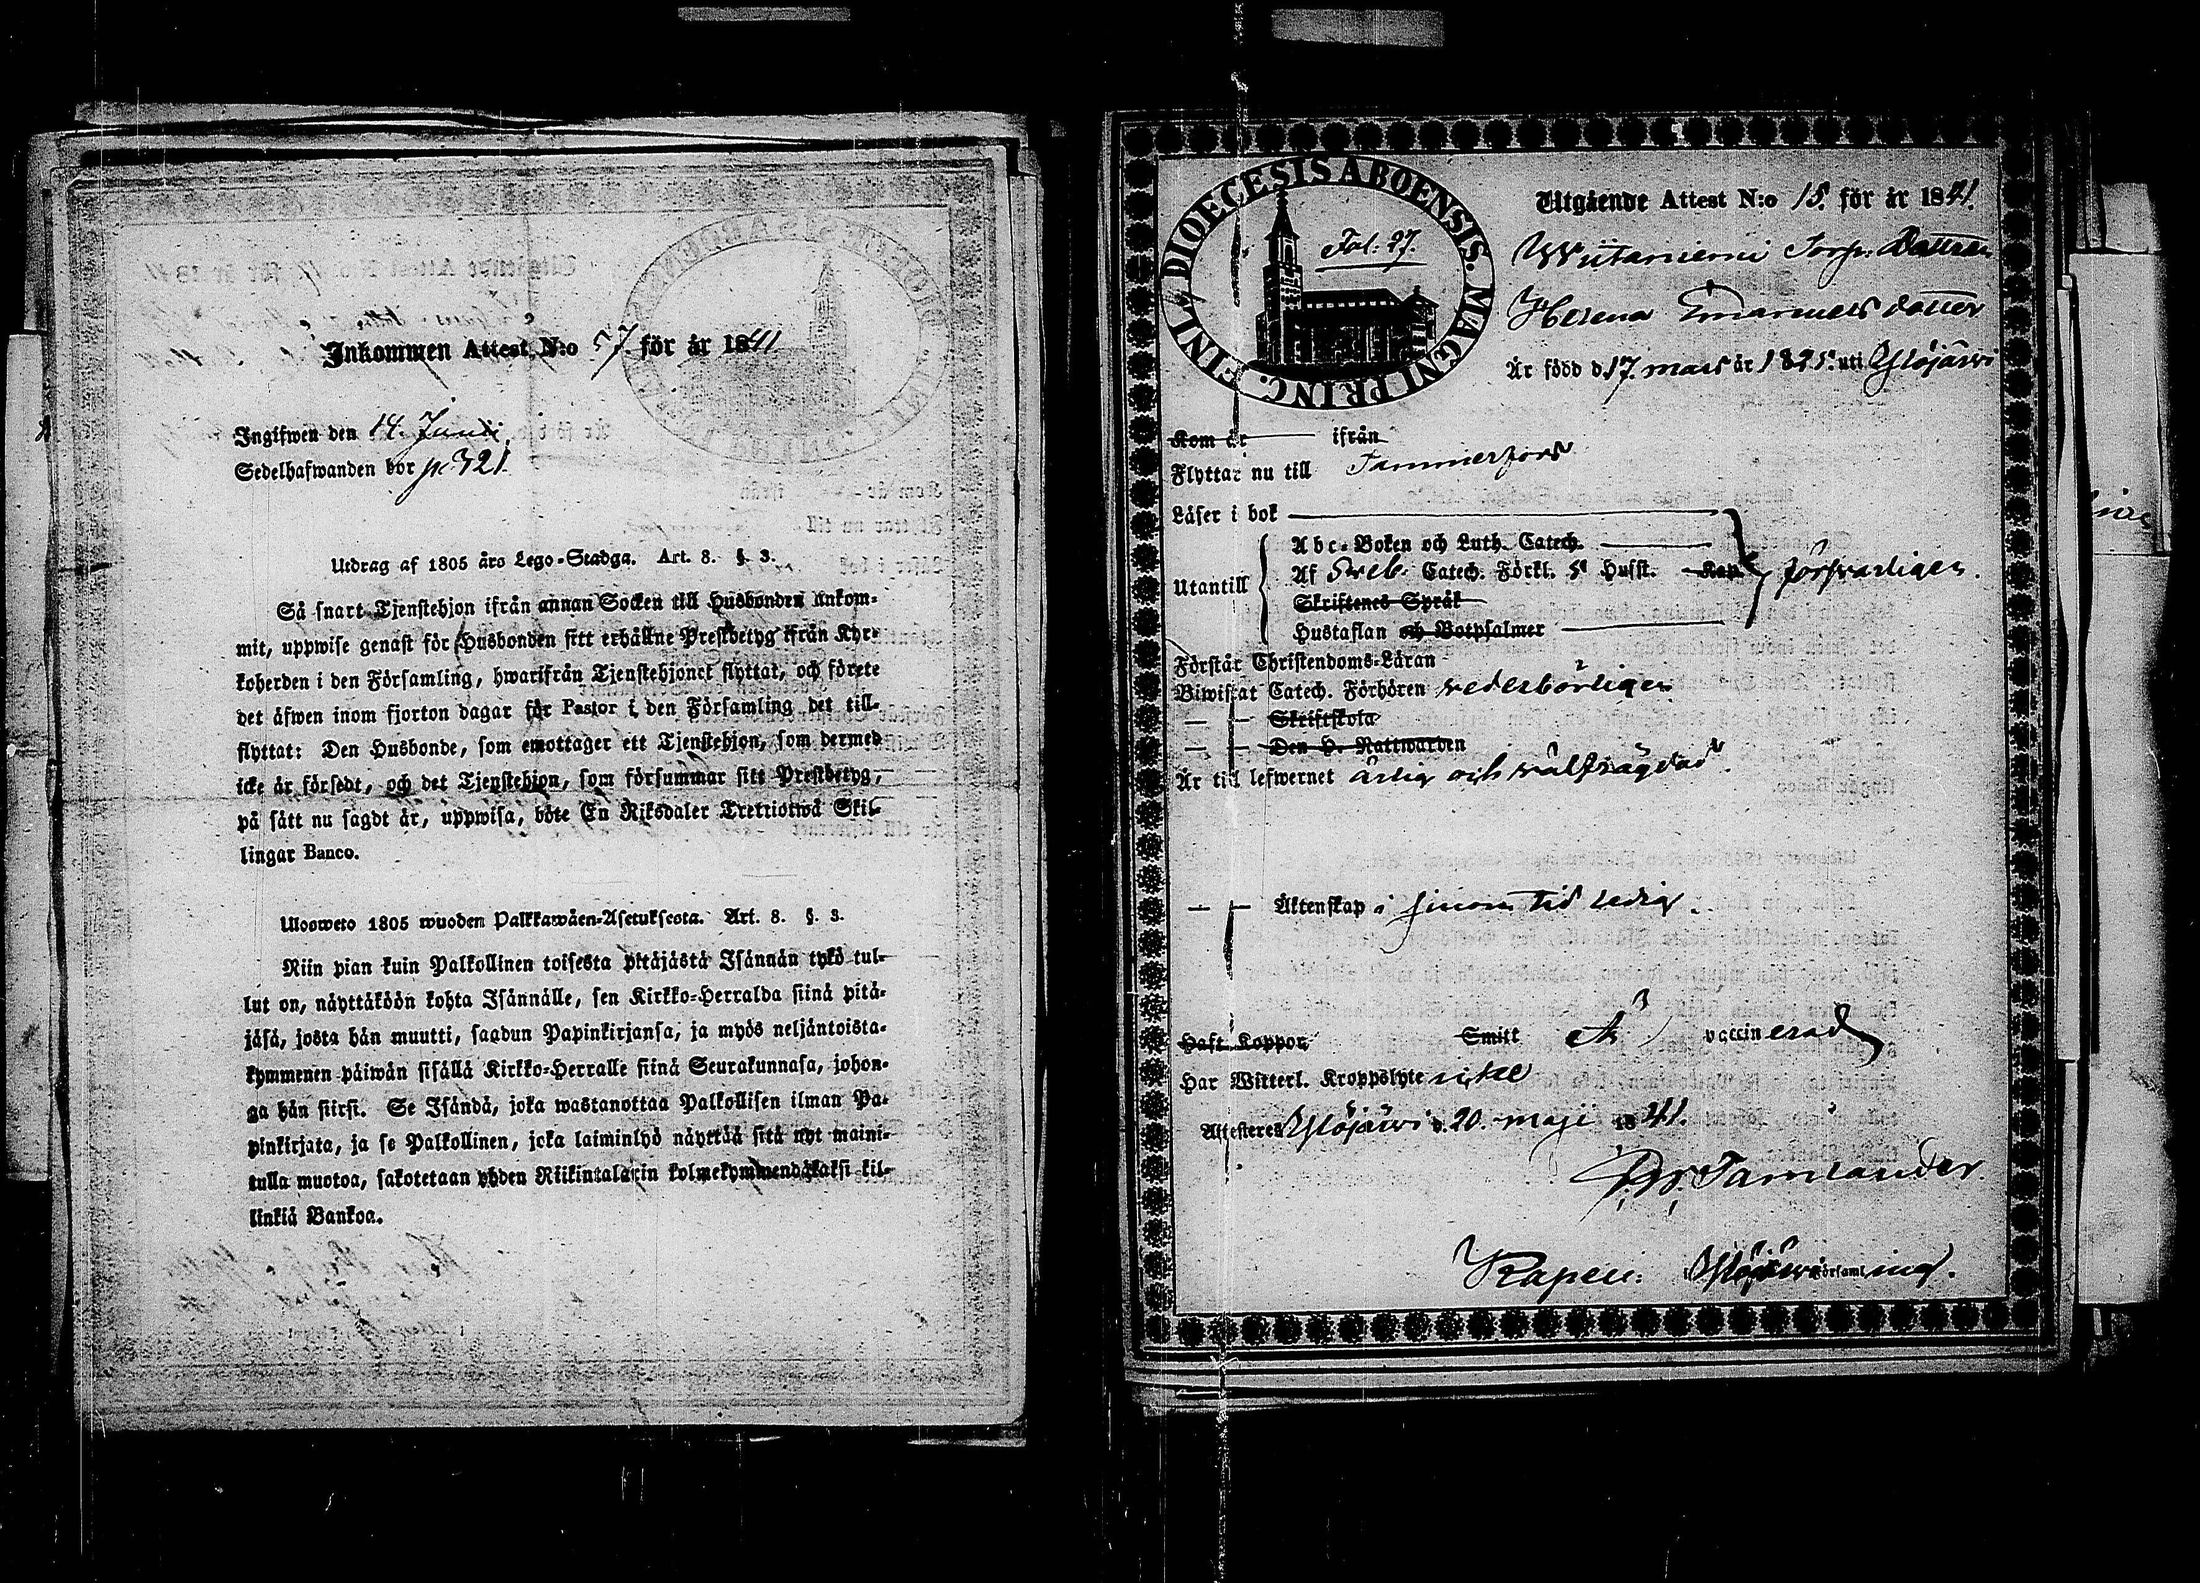 Inkommen Attest N:o 57 för år 1841
Ingifwen den 14. Junii
Sedelhafwanden bor p. 321.
Utdrag af 1805 års Lego-Stadga. Art. 8. §. 3.
Så snart Tjenstehjon ifrån annan Socken till Husbonden ankom-
mit, uppwise genast för Husbonden sitt erhållne Prestbetyg ifrån Kyr-
koherden i den Församling, hwarifrån Tjenstehjonet flyttat, och förete
det äfwen inom fjorton dagar för Pastor i den Församling det till-
flyttat: Den Husbonde, som emottager ett Tjenstehjon, som dermed
icke är försedt, och det Tjenstehjon, som försummar sitt Prestbetyg,
på sätt nu sagdt är, uppwisa, böte En Riksdaler Trettiotwå Skil-
lingar Banco.
Ulosweto 1805 wuoden Palkkawäen-Asetuksesta. Art. 8. §. 3.
Niin pian kuin Palkollinen toisesta pitäjästä Isännän tykö tul-
lut on, näyttäköön kohta Isännälle, sen Kirkko-Herralda siinä pitä-
jäsä, josta hän muutti, saadun Papinkirjansa, ja myös neljäntoista-
kymmenen päiwän sisällä Kirkko-Herralle siinä Seurakunnasa, johon-
ga hän siirsi. Se Isändä, joka wastanottaa Palkollisen ilman Pa-
pinkirjata, ja se Palkollinen, joka laiminlyö näyttää sitä nyt maini-
tulla muotoa, sakotetaan yhden Riikintalarin kolmekymmendäkaksi kil-
linkiä Bankoa.
DIOECESIS ABOENSIS. MAGNI PRINC. FINL.
Fol: 27.
Utgående Attest N:o 15. för år 1841.
Wiitaniemi Torp. Dottren
Helena Emanuelsdotter
Är född d. 17. mars år 1825. uti Ylöjärwi
Kom år ifrån
Flyttar nu till Tammerfors
Läser i bok
Utantill
Abc-Boken och Luth. Catech.
Af Sveb. Catech. Förkl. 5 Hufst. Kap. försvarligen.
Skriftenes Språk
Hustaflan och Botpsalmer
Förstår Christendoms-Läran
Biwistat Catech. Förhören vederbörligen
— — Skriftskola
— — Den H. Nattwarden
Är till lefwernet ärlig och välfrägdad
— — Äktenskap i sinom tid ledig.
Haft Koppor, Smitt är vaccinerad
Har Witterl. Kroppslyte icke
Attesteres Ylöjärwi d. 20. maji 1841.
Gr. Tamlander
Kapell. i Ylöjärwi Församling.